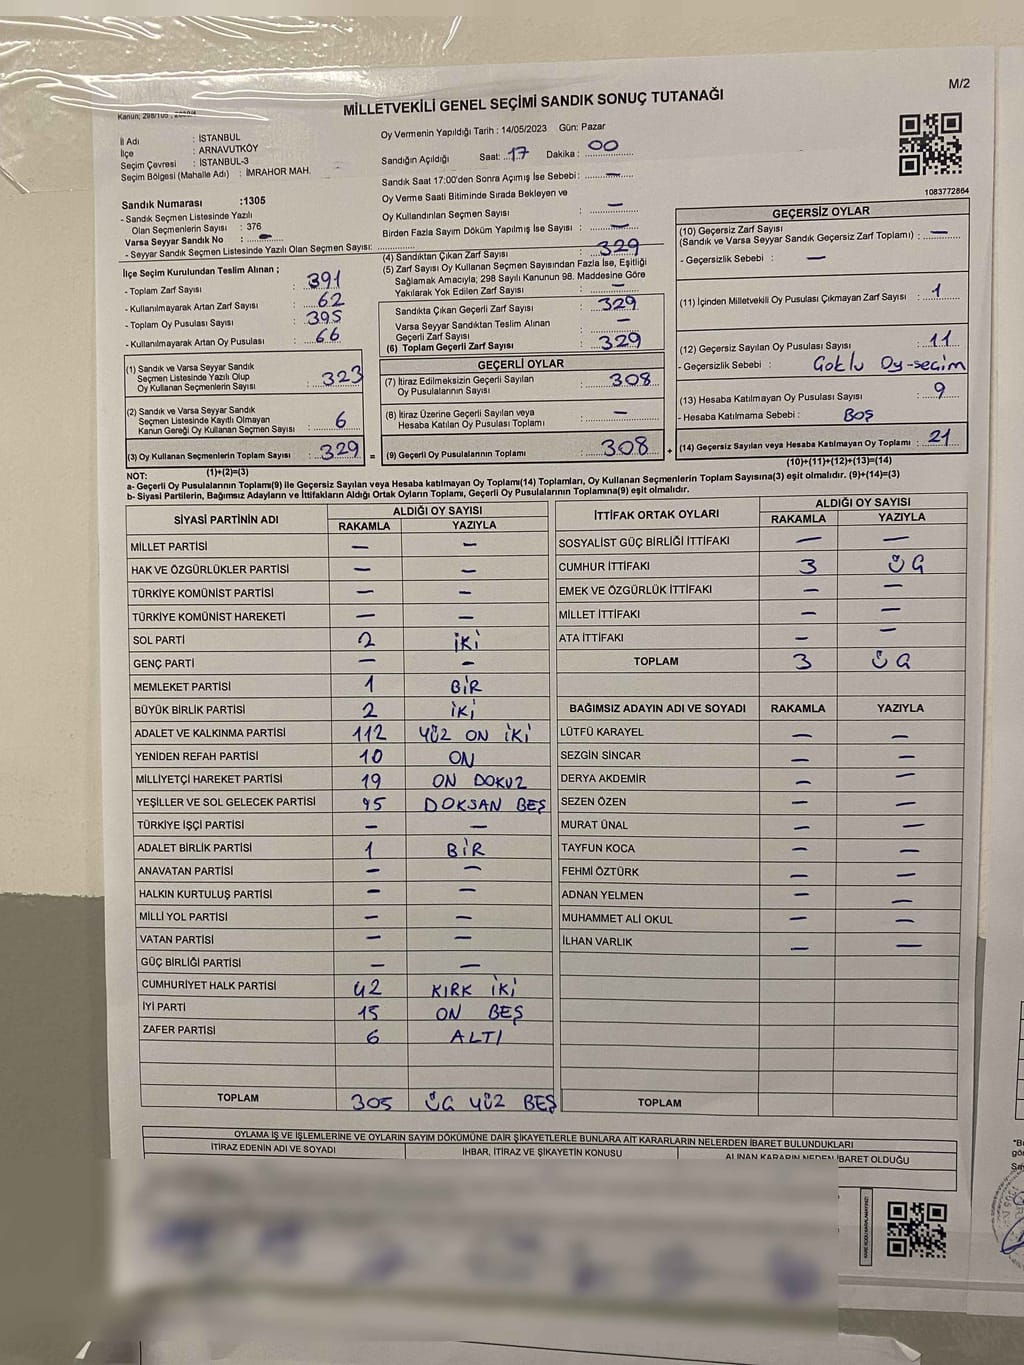 M/2
MİLLETVEKİLİ GENEL SEÇİMİ SANDIK SONUÇ TUTANAĞI
Kanun; 298/105
İl Adı : İSTANBUL
İlçe : ARNAVUTKÖY
Seçim Çevresi : İSTANBUL-3
Seçim Bölgesi (Mahalle Adı) : İMRAHOR MAH.
Oy Vermenin Yapıldığı Tarih : 14/05/2023 Gün: Pazar
Sandığın Açıldığı Saat: 17 Dakika : 00
Sandık Saat 17:00'den Sonra Açımış İse Sebebi : —
Oy Verme Saati Bitiminde Sırada Bekleyen ve
Oy Kullandırılan Seçmen Sayısı : —
Birden Fazla Sayım Döküm Yapılmış İse Sayısı : —
1083772864
Sandık Numarası :1305
- Sandık Seçmen Listesinde Yazılı
Olan Seçmenlerin Sayısı : 376
Varsa Seyyar Sandık No : —
- Seyyar Sandık Seçmen Listesinde Yazılı Olan Seçmen Sayısı:
İlçe Seçim Kurulundan Teslim Alınan ;
- Toplam Zarf Sayısı : 391
- Kullanılmayarak Artan Zarf Sayısı : 62
- Toplam Oy Pusulası Sayısı : 395
- Kullanılmayarak Artan Oy Pusulası : 66
(1) Sandık ve Varsa Seyyar Sandık
Seçmen Listesinde Yazılı Olup
Oy Kullanan Seçmenlerin Sayısı : 323
(2) Sandık ve Varsa Seyyar Sandık
Seçmen Listesinde Kayıtlı Olmayan
Kanun Gereği Oy Kullanan Seçmen Sayısı : 6
(3) Oy Kullanan Seçmenlerin Toplam Sayısı : 329 =
(1)+(2)=(3)
(4) Sandıktan Çıkan Zarf Sayısı : 329
(5) Zarf Sayısı Oy Kullanan Seçmen Sayısından Fazla İse, Eşitliği
Sağlamak Amacıyla; 298 Sayılı Kanunun 98. Maddesine Göre
Yakılarak Yok Edilen Zarf Sayısı : —
Sandıkta Çıkan Geçerli Zarf Sayısı : 329
Varsa Seyyar Sandıktan Teslim Alınan
Geçerli Zarf Sayısı : —
(6) Toplam Geçerli Zarf Sayısı : 329
GEÇERLİ OYLAR
(7) İtiraz Edilmeksizin Geçerli Sayılan
Oy Pusulasının Sayısı : 308
(8) İtiraz Üzerine Geçerli Sayılan veya
Hesaba Katılan Oy Pusulası Toplamı : —
(9) Geçerli Oy Pusulalarının Toplamı : 308 +
GEÇERSİZ OYLAR
(10) Geçersiz Zarf Sayısı
(Sandık ve Varsa Seyyar Sandık Geçersiz Zarf Toplamı) : —
- Geçersizlik Sebebi : —
(11) İçinden Milletvekili Oy Pusulası Çıkmayan Zarf Sayısı : 1
(12) Geçersiz Sayılan Oy Pusulası Sayısı : 11
- Geçersizlik Sebebi : Çoklu Oy-seçim
(13) Hesaba Katılmayan Oy Pusulası Sayısı : 9
- Hesaba Katılmama Sebebi : BOŞ
(14) Geçersiz Sayılan veya Hesaba Katılmayan Oy Toplamı : 21
(10)+(11)+(12)+(13)=(14)
NOT:
a- Geçerli Oy Pusulalarının Toplamı(9) ile Geçersiz Sayılan veya Hesaba katılmayan Oy Toplamı(14) Toplamları, Oy Kullanan Seçmenlerin Toplam Sayısına(3) eşit olmalıdır. (9)+(14)=(3)
b- Siyasi Partilerin, Bağımsız Adayların ve İttifakların Aldığı Ortak Oyların Toplamı, Geçerli Oy Pusulalarının Toplamına(9) eşit olmalıdır.
SİYASİ PARTİNİN ADI ALDIĞI OY SAYISI
RAKAMLA YAZIYLA
MİLLET PARTİSİ — —
HAK VE ÖZGÜRLÜKLER PARTİSİ — —
TÜRKİYE KOMÜNİST PARTİSİ — —
TÜRKİYE KOMÜNİST HAREKETİ — —
SOL PARTİ 2 İKİ
GENÇ PARTİ — —
MEMLEKET PARTİSİ 1 BİR
BÜYÜK BİRLİK PARTİSİ 2 İKİ
ADALET VE KALKINMA PARTİSİ 112 YÜZ ON İKİ
YENİDEN REFAH PARTİSİ 10 ON
MİLLİYETÇİ HAREKET PARTİSİ 19 ON DOKUZ
YEŞİLLER VE SOL GELECEK PARTİSİ 95 DOKSAN BEŞ
TÜRKİYE İŞÇİ PARTİSİ — —
ADALET BİRLİK PARTİSİ 1 BİR
ANAVATAN PARTİSİ — —
HALKIN KURTULUŞ PARTİSİ — —
MİLLİ YOL PARTİSİ — —
VATAN PARTİSİ — —
GÜÇ BİRLİĞİ PARTİSİ — —
CUMHURİYET HALK PARTİSİ 42 KIRK İKİ
İYİ PARTİ 15 ON BEŞ
ZAFER PARTİSİ 6 ALTI
TOPLAM 305 ÜÇ YÜZ BEŞ
İTTİFAK ORTAK OYLARI ALDIĞI OY SAYISI
RAKAMLA YAZIYLA
SOSYALİST GÜÇ BİRLİĞİ İTTİFAKI — —
CUMHUR İTTİFAKI 3 ÜÇ
EMEK VE ÖZGÜRLÜK İTTİFAKI — —
MİLLET İTTİFAKI — —
ATA İTTİFAKI — —
TOPLAM 3 ÜÇ
BAĞIMSIZ ADAYIN ADI VE SOYADI RAKAMLA YAZIYLA
LÜTFÜ KARAYEL — —
SEZGİN SİNCAR — —
DERYA AKDEMİR — —
SEZEN ÖZEN — —
MURAT ÜNAL — —
TAYFUN KOCA — —
FEHMİ ÖZTÜRK — —
ADNAN YELMEN — —
MUHAMMET ALİ OKUL — —
İLHAN VARLIK — —
TOPLAM
OYLAMA İŞ VE İŞLEMLERİNE VE OYLARIN SAYIM DÖKÜMÜNE DAİR ŞİKAYETLERLE BUNLARA AİT KARARLARIN NELERDEN İBARET BULUNDUKLARI
İTİRAZ EDENİN ADI VE SOYADI İHBAR, İTİRAZ VE ŞİKAYETİN KONUSU ALINAN KARARIN NEDEN İBARET OLDUĞU